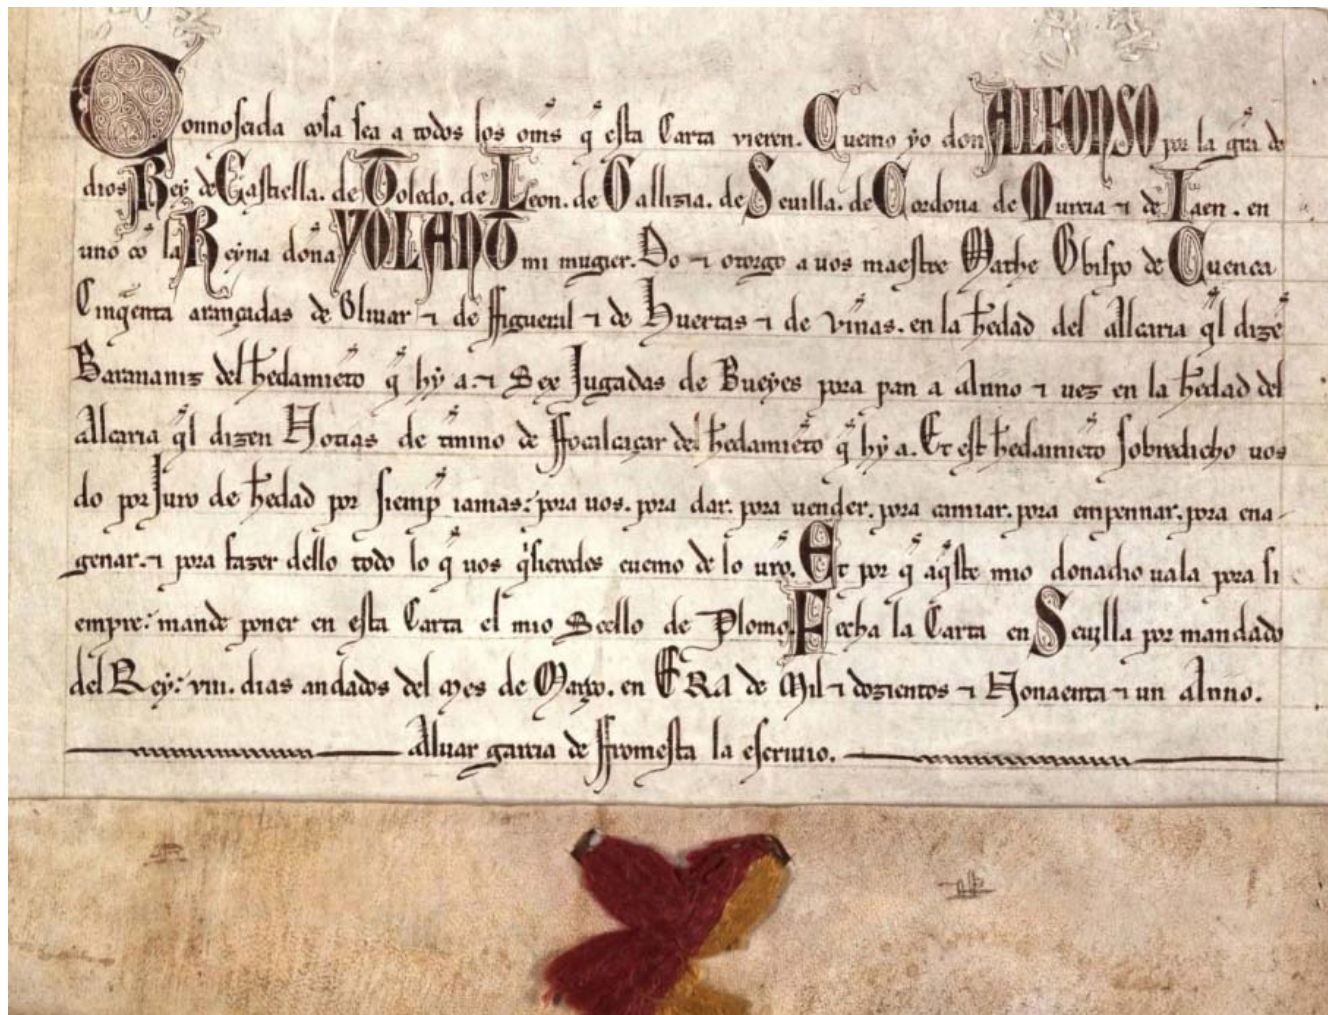 Connosçida cosa sea a todos los om̅s q̅ esta Carta vieren. Cuemo yo don ALFONSO por la gr̅a de
dios Rey de Castiella. de Toledo. de Leon. de Gallizia. de Seuilla. de Cordoua de Murcia ⁊ de Iaen. en
uno co̅ la Reyna dona YOLANT mi mugier. Do ⁊ otorgo a uos maestre Mathe Obispo de Cuenca
Cinq̅enta arançadas de Oliuar ⁊ de Ffigueral ⁊ de Huertas ⁊ de vin̅as. en la h̅edad del Alcaria q̅l dize̅
Barananiz del h̅edamie̅to q̅ hy a. ⁊ Sex Jugadas de Bueyes pora pan a Anno ⁊ uez en la h̅edad del
Alcaria q̅l dizen Notias de t̅mino de Ffocalcaçar del h̅edamie̅to q̅ hy a. Et est h̅edamie̅to sobredicho uos
do por Juro de h̅edad por siemp̅ iamas. pora uos. pora dar. pora uender. pora camiar. pora empennar. pora ena-
genar. ⁊ pora fazer dello todo lo q̅ uos q̅sieredes cuemo de lo ur̅o. Et por q̅ aq̅ste mio donadio uala pora si
empre. mande poner en esta Carta el mio Seello de Plomo. Fecha la Carta en Seuilla por mandado
del Rey. viii. dias andados del Mes de Março. en ERA de Mil ⁊ dozientos ⁊ Nonaenta ⁊ un Anno.
Aluar garcia de Ffromesta la escriuio.